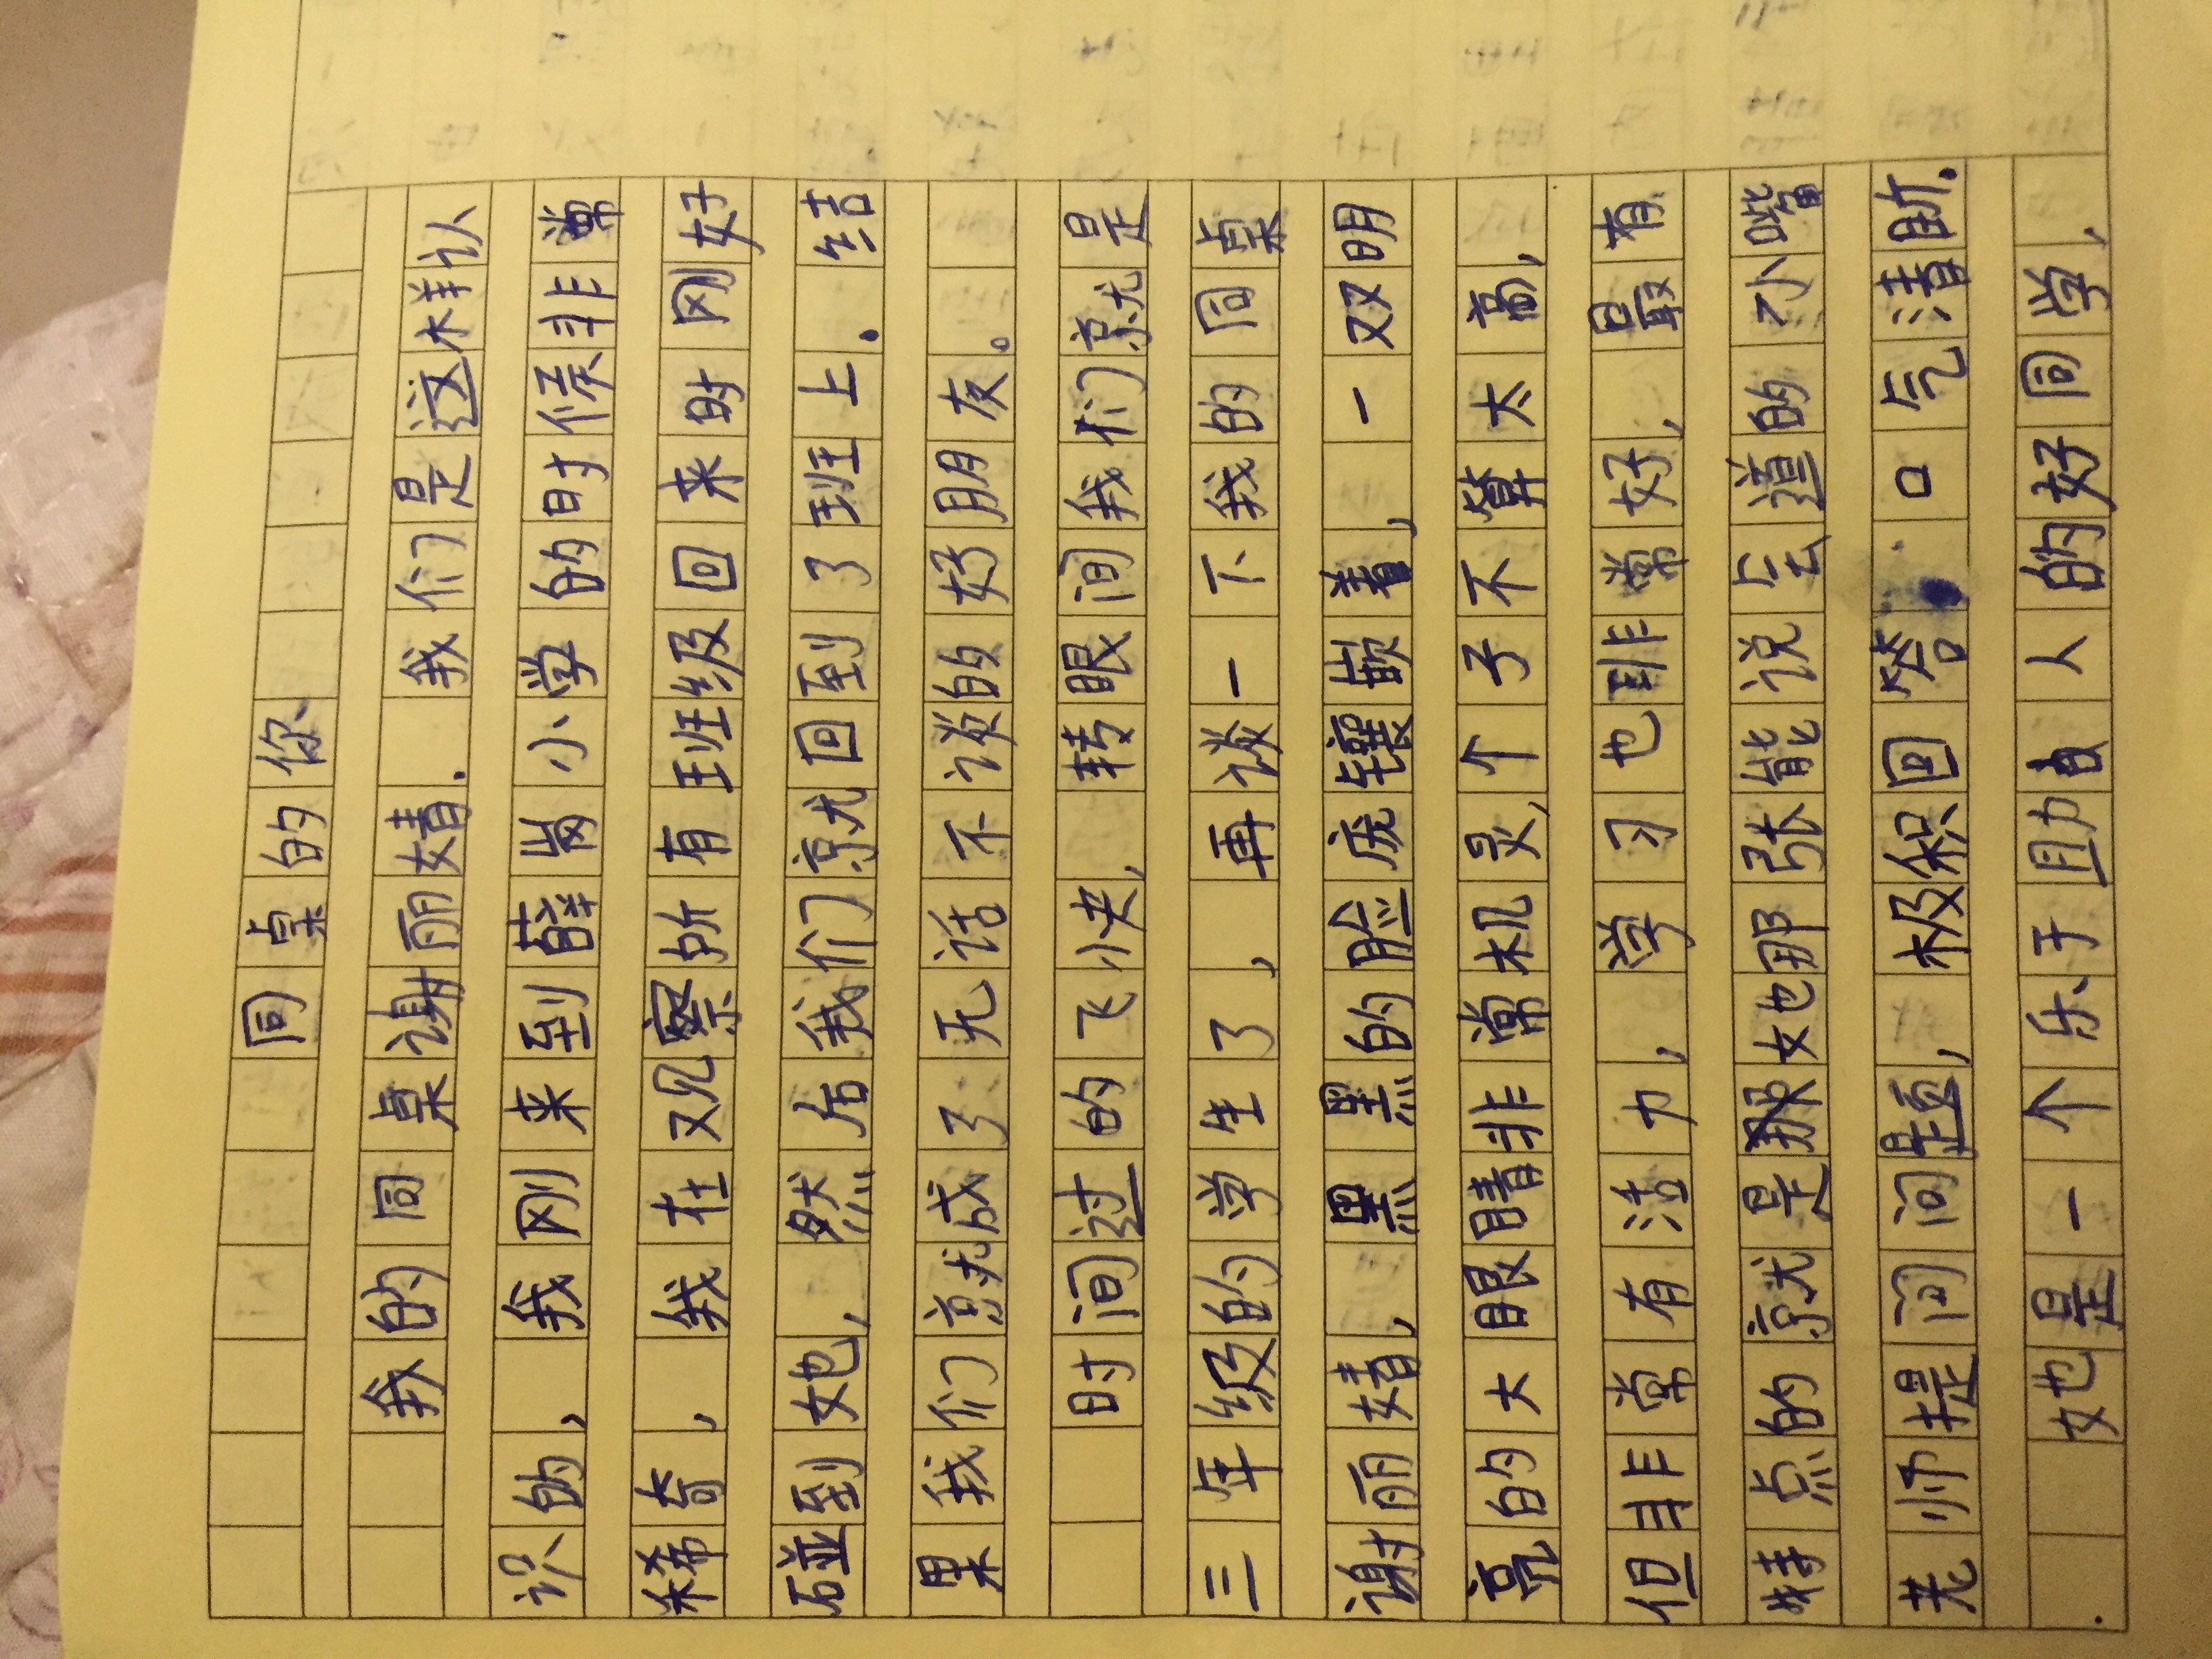 同桌的你
我的同桌谢丽婧.我们是这样认
识的,我刚来到薛岗小学的时候非常
稀奇,我在观察所有班级回来时刚好
碰到她,然后我们就回到了班上.结
果我们就成了无话不谈的好朋友。
时间过的飞快,转眼间我们就是
三年级的学生了,再谈一下我的同桌
谢丽婧,黑黑的脸庞镶嵌着,一双明
亮的大眼睛非常机灵,个子不算太高,
但非常有活力,学习也非常好,最有
特点的就是她那张能说会道的小嘴
老师提问问题,极积回答.口气清晰.
她是一个乐于助人的好同学,